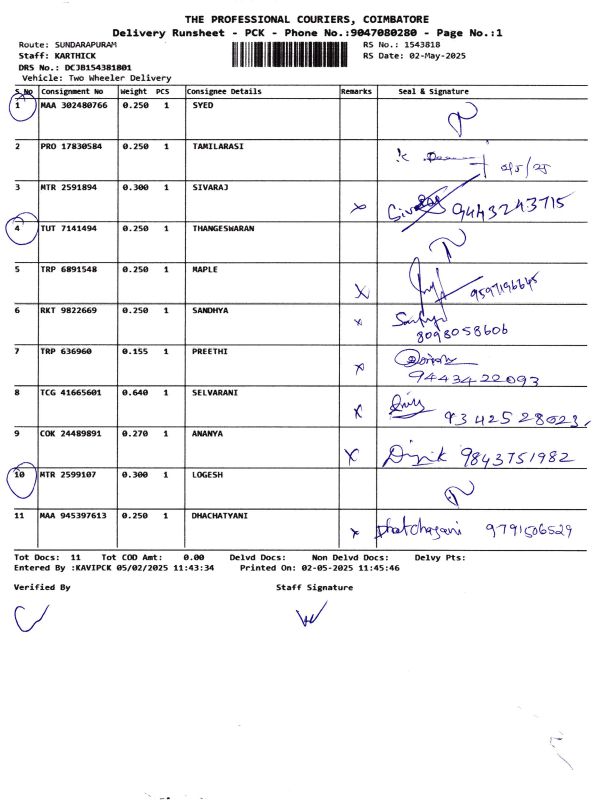 THE PROFESSIONAL COURIERS, COIMBATORE
Delivery Runsheet - PCK - Phone No.:9047080280 - Page No.:1
Route: SUNDARAPURAM RS No.: 1543818
Staff: KARTHICK RS Date: 02-May-2025
DRS No.: DCJB154381801
Vehicle: Two Wheeler Delivery
S.No Consignment No Weight PCS Consignee Details Remarks Seal & Signature
1 MAA 302480766 0.250 1 SYED
2 PRO 17830584 0.250 1 TAMILARASI
3 MTR 2591894 0.300 1 SIVARAJ x Sivaraj 9443243715
4 TUT 7141494 0.250 1 THANGESWARAN
5 TRP 6891548 0.250 1 MAPLE x 9597196645
6 RKT 9822669 0.250 1 SANDHYA x
8098058606
7 TRP 636960 0.155 1 PREETHI x
9443422093
8 TCG 41665601 0.640 1 SELVARANI x 9342528023
9 COK 24489891 0.270 1 ANANYA x 9843751982
10 MTR 2599107 0.300 1 LOGESH
11 MAA 945397613 0.250 1 DHACHATYANI x 9791506529
Tot Docs: 11 Tot COD Amt: 0.00 Delvd Docs: Non Delvd Docs: Delvy Pts:
Entered By :KAVIPCK 05/02/2025 11:43:34 Printed On: 02-05-2025 11:45:46
Verified By Staff Signature